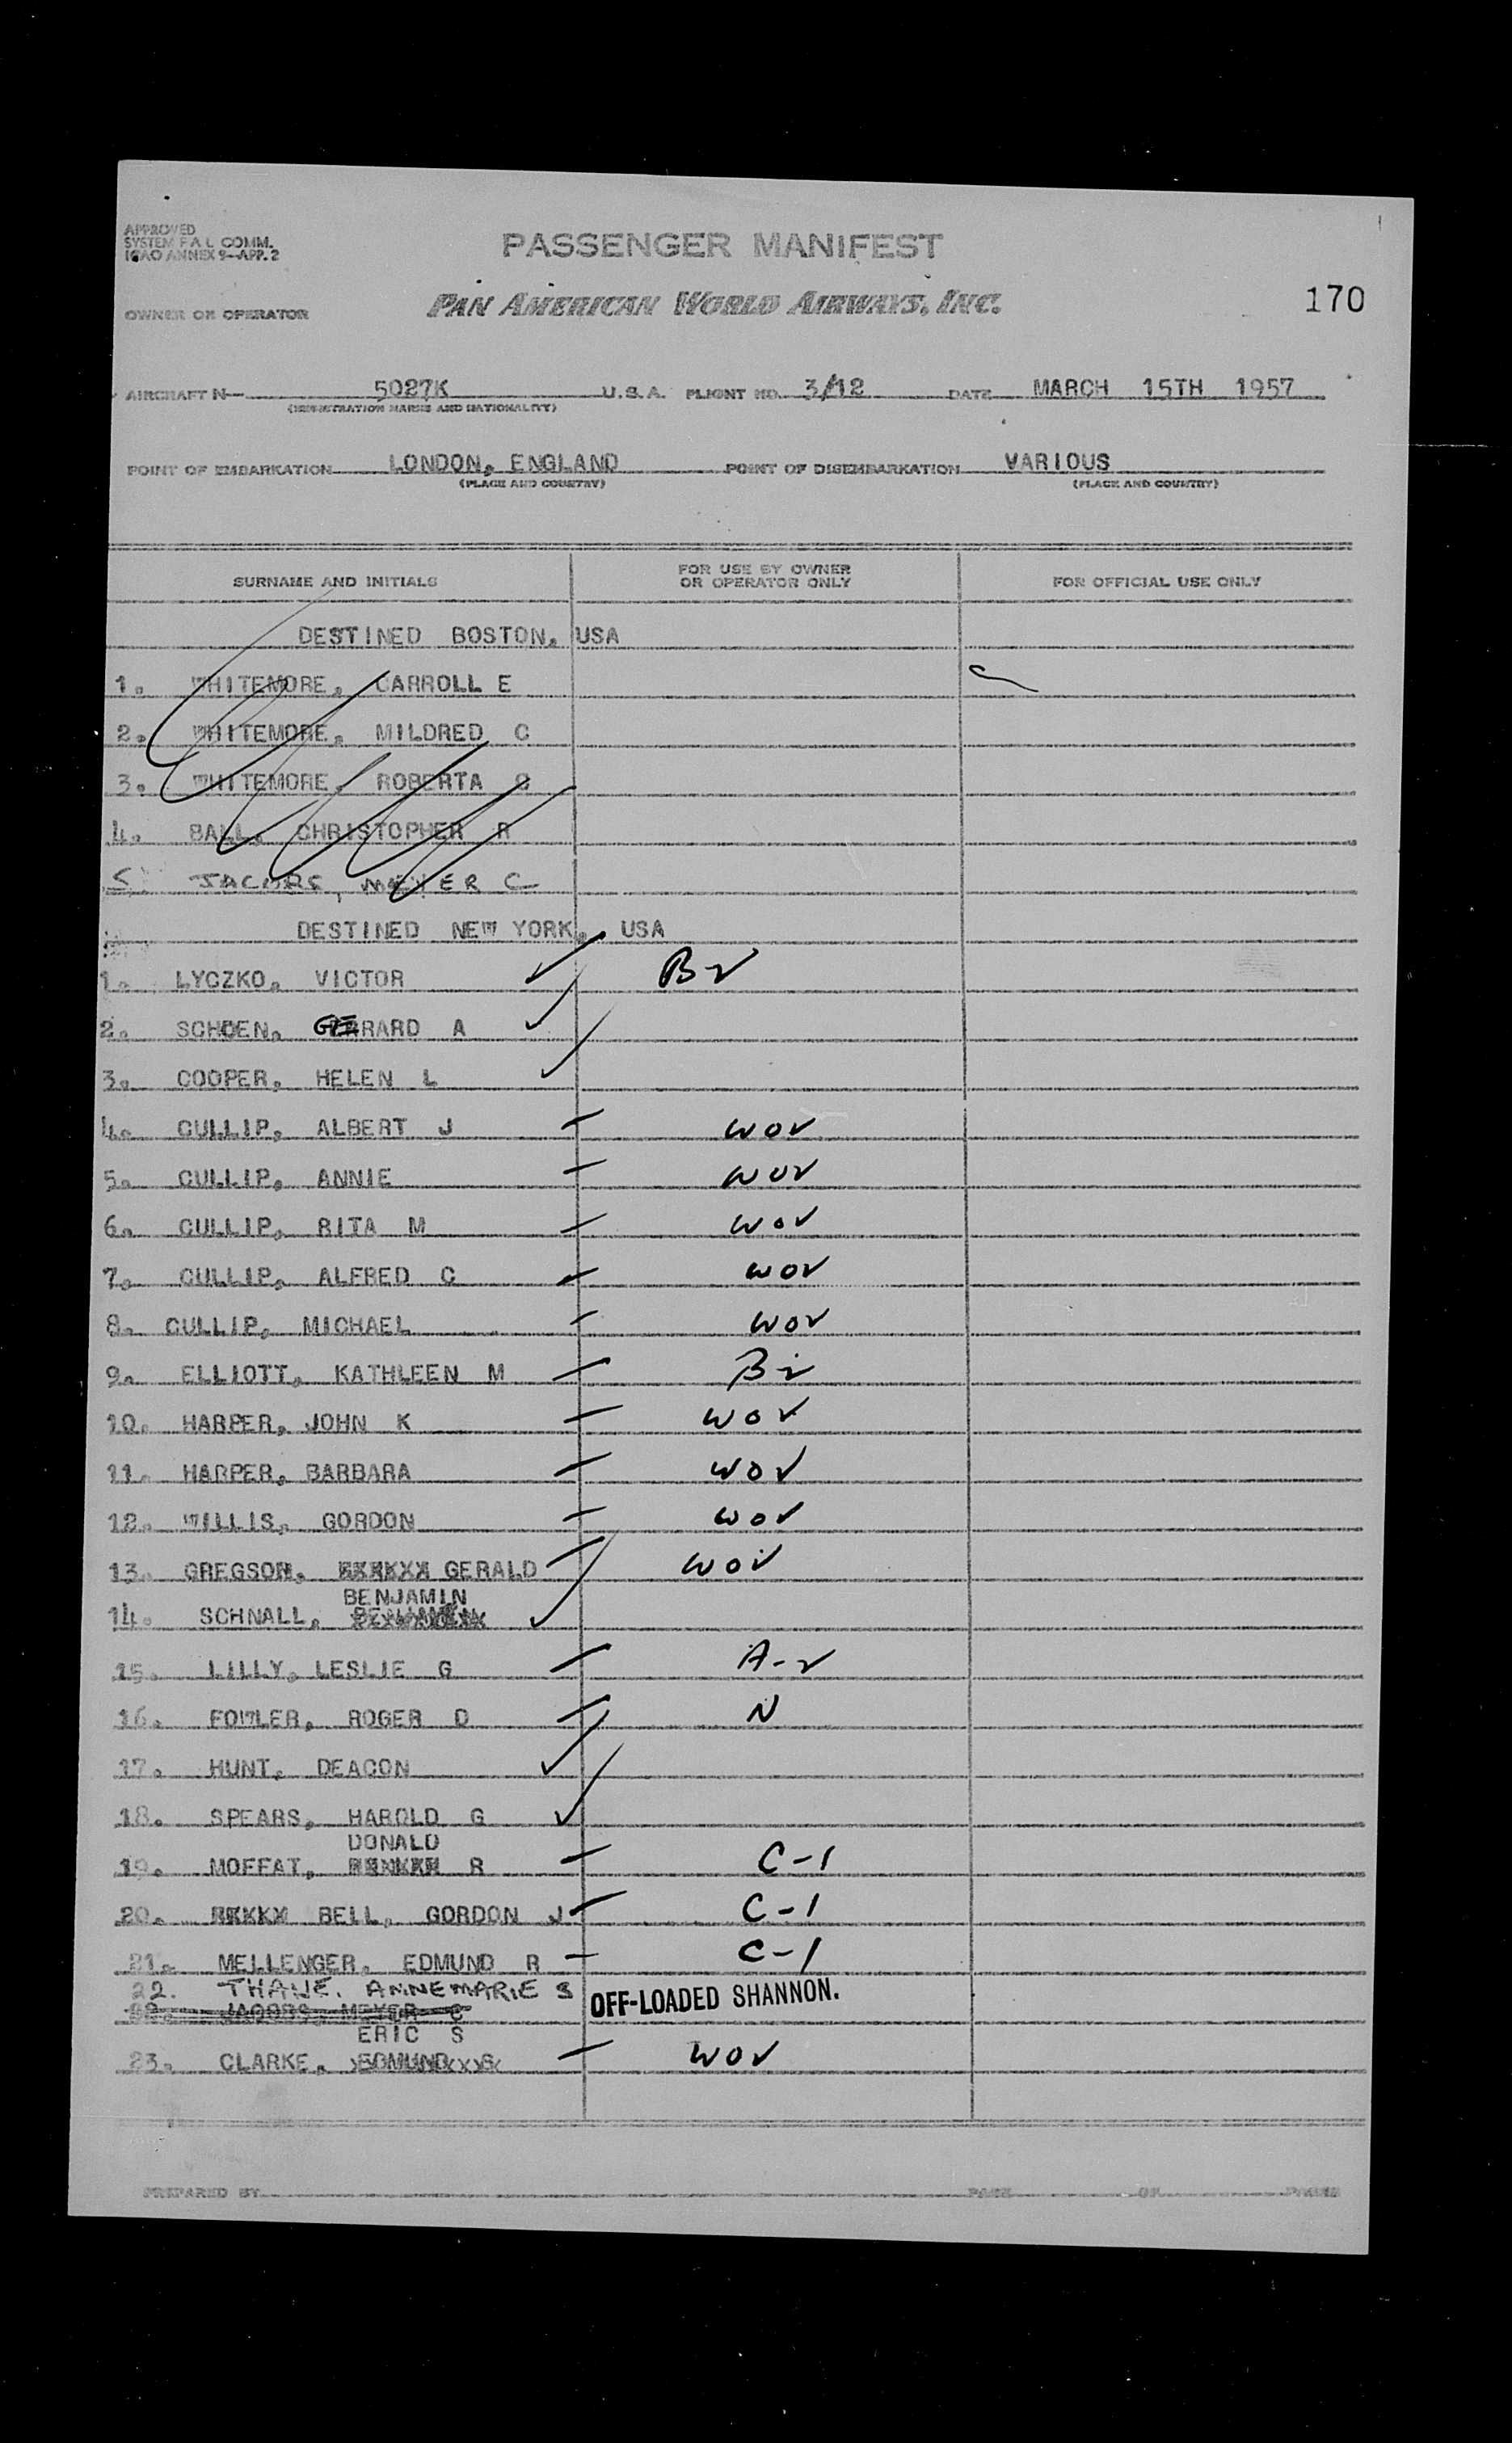 APPROVED
SYSTEM F A L COMM.
ICAO ANNEX 9—APP. 2
PASSENGER MANIFEST
OWNER OR OPERATOR PAN AMERICAN WORLD AIRWAYS, INC. 170
AIRCRAFT N— 5027K U.S.A. FLIGHT NO. 3/12 DATE MARCH 15TH 1957
(REGISTRATION MARKS AND NATIONALITY)
POINT OF EMBARKATION LONDON, ENGLAND POINT OF DISEMBARKATION VARIOUS
(PLACE AND COUNTRY) (PLACE AND COUNTRY)
SURNAME AND INITIALS FOR USE BY OWNER OR OPERATOR ONLY FOR OFFICIAL USE ONLY
DESTINED BOSTON, USA
1. WHITEMORE, CARROLL E
2. WHITEMORE, MILDRED C
3. WHITEMORE, ROBERTA C
4. BALL, CHRISTOPHER R
5. JACOBS, MEYER C
DESTINED NEW YORK, USA
1. LYCZKO, VICTOR B2
2. SCHOEN, GERARD A
3. COOPER, HELEN L
4. CULLIP, ALBERT J WOV
5. CULLIP, ANNIE WOV
6. CULLIP, RITA M WOV
7. CULLIP, ALFRED C WOV
8. CULLIP, MICHAEL WOV
9. ELLIOTT, KATHLEEN M B2
10. HARPER, JOHN K WOV
11. HARPER, BARBARA WOV
12. WILLIS, GORDON WOV
13. GREGSON, GERALD WOV
BENJAMIN
14. SCHNALL,
15. LILLY, LESLIE G A-2
16. FOWLER, ROGER D N
17. HUNT, DEACON
18. SPEARS, HAROLD G
DONALD
19. MOFFAT, R C-1
20. BELL, GORDON J C-1
21. MELLENGER, EDMUND R C-1
22. THANE. ANNEMARIE S OFF-LOADED SHANNON.
22. JACOBS, MEYER C
ERIC S
23. CLARKE, EDMUND WOV
PREPARED BY PAGE OF PAGES